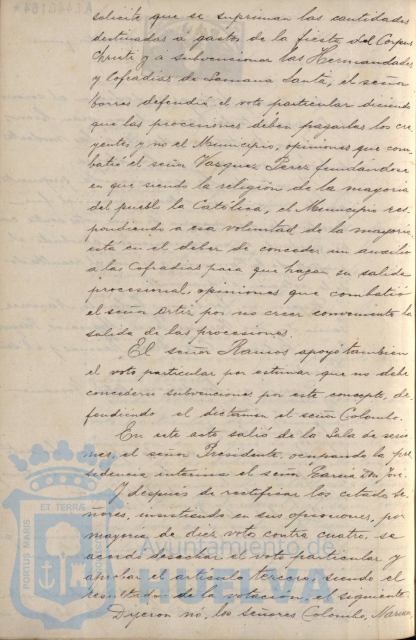 solicite que se supriman las cantidades
destinadas a gastos de la fiesta del Corpus
Christi y a subvencionar las Hermandades
y Cofradias de Semana Santa, el señor
Torres defendió el voto particular diciendo
que las procesiones deben pagarlas los cre
yentes y no el Municipio, opiniones que com
batió el señor Vazquez Perez fundandose
en que siendo la religión de la mayoria
del pueblo la Católica, el Municipio res
pondiendo a esa voluntad de la mayoria
está en el deber de conceder un auxilio
a las Cofradias para que hagan su salida
procesional, opiniones que combatió
el señor Ortiz por no creer conveniente la
salida de las procesiones.
El señor Ramos apoyó tambien
el voto particular por estimar que no debe
concederse subvenciones por este concepto, de
fendiendo el dictamen el señor Colombo.
En este acto salió de la Sala de sesio
nes, el señor Presidente, ocupando la pre
sidencia interina el señor Garcia
Y despues de rectificar los citados se
ñores, insistiendo en sus opiniones, por
mayoria de diez votos contra cuatro, se
acordó desechar el voto particular y
aprobar el articulo tercero, siendo el
resultado de la votación, el siguiente
Dijeron nó, los señores Colombo,
PORTUS MARIS
ET TERRAE
Ayuntamiento de
HUELVA